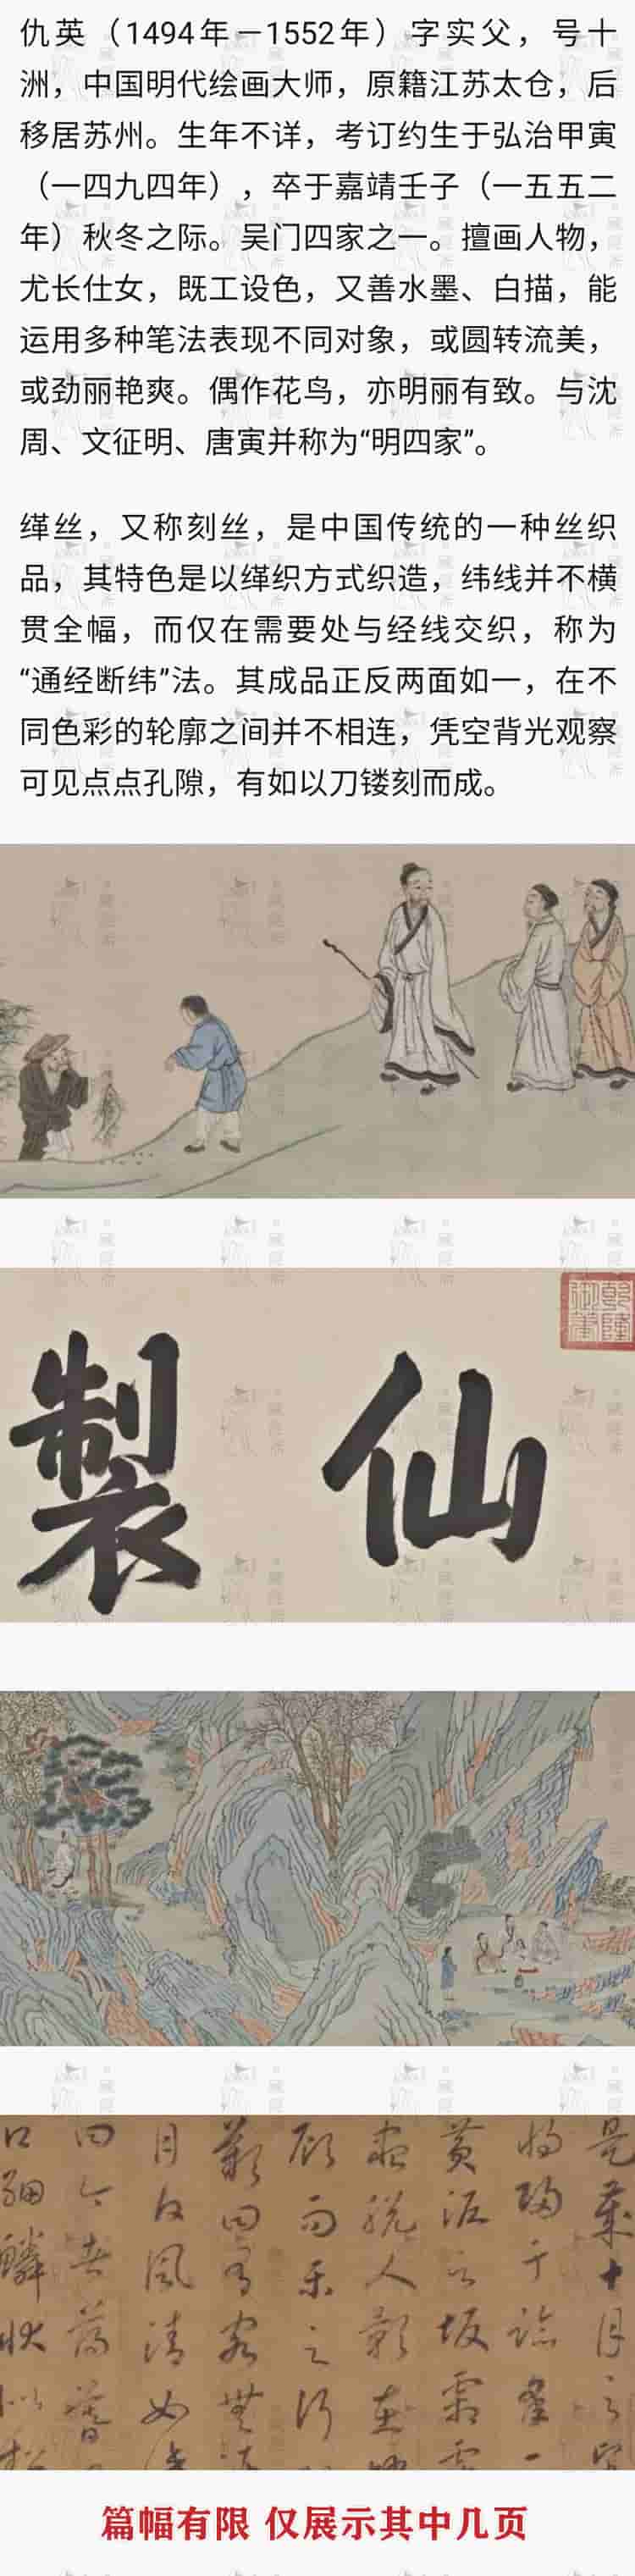 仇英（1494年－1552年）字实父，号十
洲，中国明代绘画大师，原籍江苏太仓，后
移居苏州。生年不详，考订约生于弘治甲寅
（一四九四年），卒于嘉靖壬子（一五五二
年）秋冬之际。吴门四家之一。擅画人物，
尤长仕女，既工设色，又善水墨、白描，能
运用多种笔法表现不同对象，或圆转流美，
或劲丽艳爽。偶作花鸟，亦明丽有致。与沈
周、文征明、唐寅并称为“明四家”。
缂丝，又称刻丝，是中国传统的一种丝织
品，其特色是以缂织方式织造，纬线并不横
贯全幅，而仅在需要处与经线交织，称为
“通经断纬”法。其成品正反两面如一，在不
同色彩的轮廓之间并不相连，凭空背光观察
可见点点孔隙，有如以刀镂刻而成。
乾隆御筆
仙製
是歲十月之
將歸于臨皋
黃泥之坂霜露
盡脫人影在地
顧而樂之行
歎曰有客無酒
月白風清如
曰今者薄暮
口細鱗狀似松
篇幅有限 仅展示其中几页